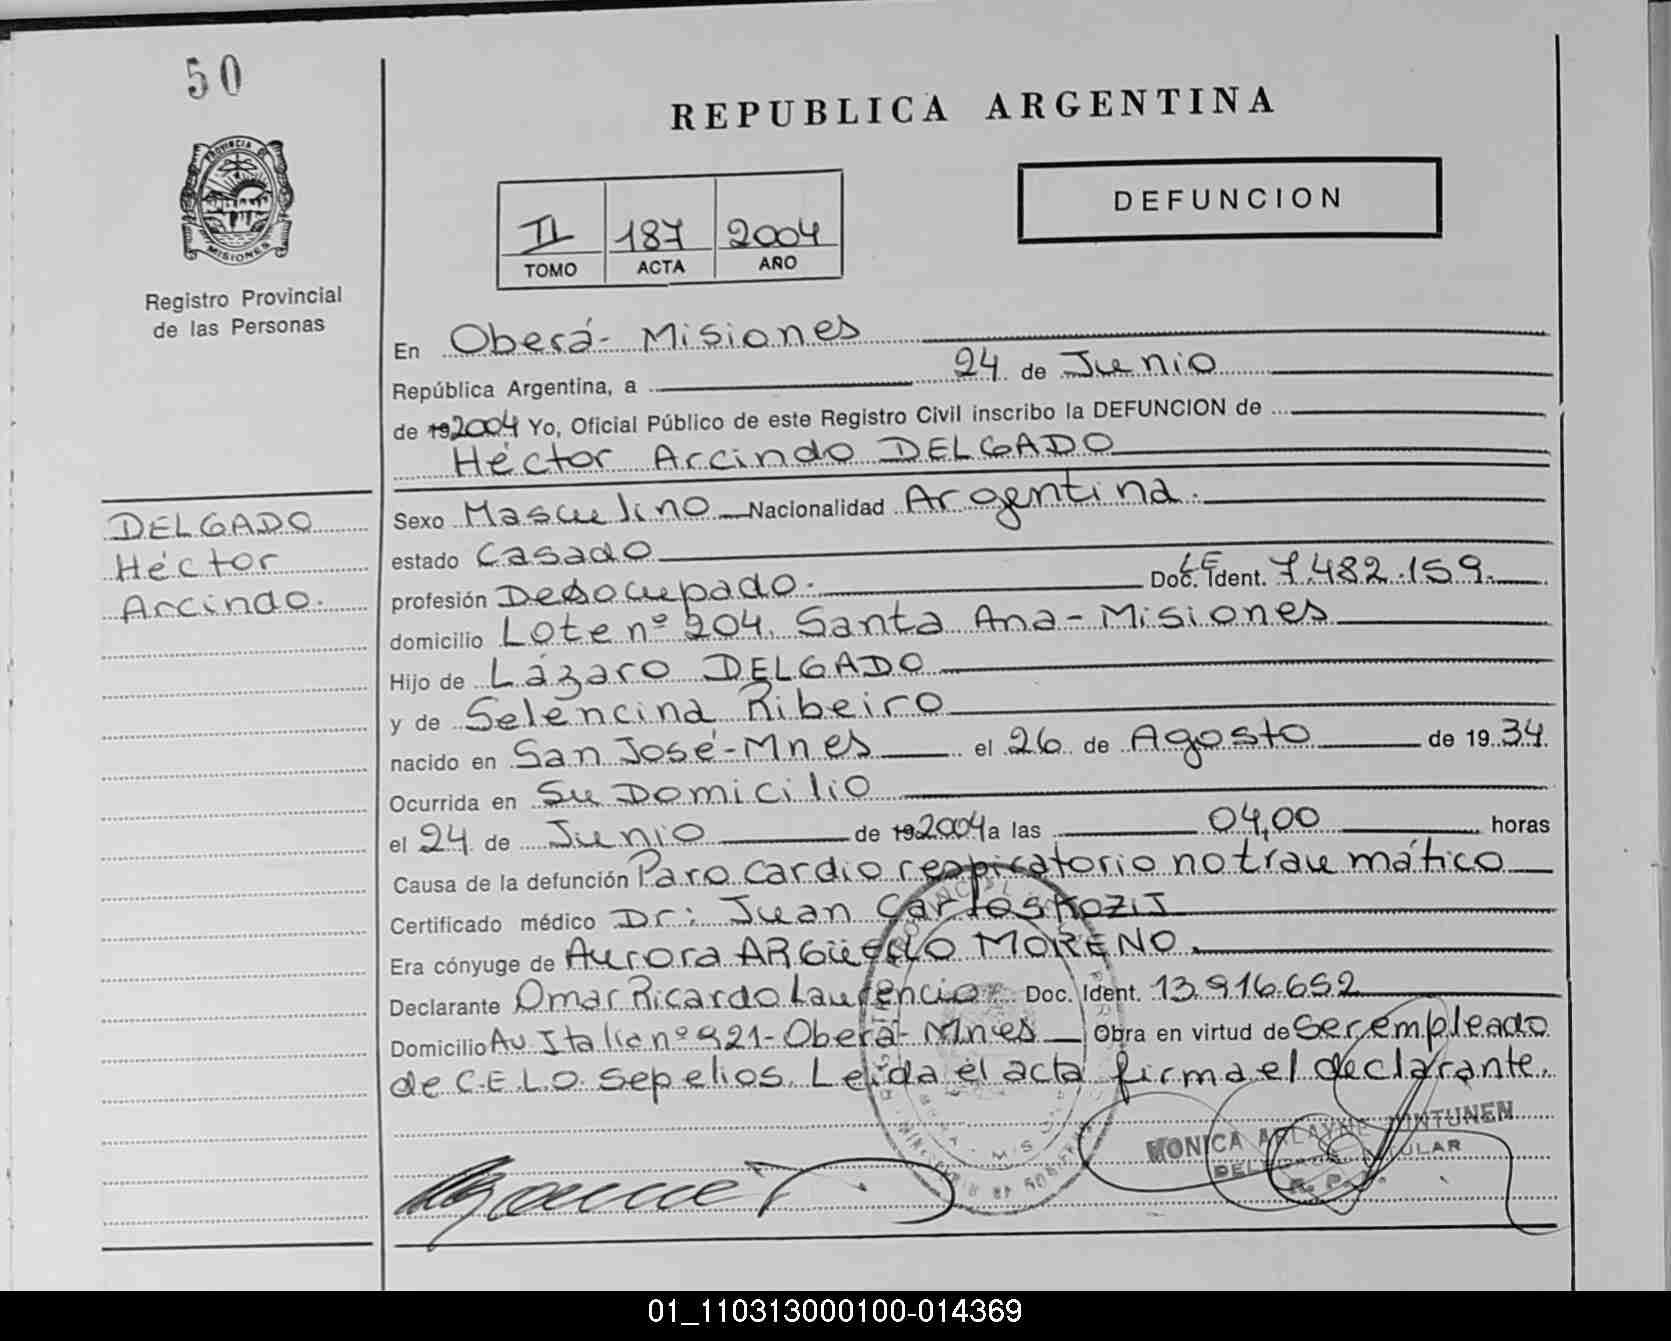 50
REPUBLICA ARGENTINA
PROVINCIA DE
MISIONES
Registro Provincial
de las Personas
II 187 2004
TOMO ACTA AÑO
DEFUNCION
DELGADO
Héctor
Arcindo.
En Oberá- Misiones
República Argentina, a 24 de Junio
de 192004 Yo, Oficial Público de este Registro Civil inscribo la DEFUNCION de
Héctor Arcindo DELGADO
Sexo Masculino Nacionalidad Argentina.
estado Casado
profesión Desocupado. Doc. Ident. LE 7.482.159.
domicilio Lote nº 204. Santa Ana - Misiones
Hijo de Lázaro DELGADO
y de Selencina Ribeiro
nacido en San José-Mnes el 26 de Agosto de 1934.
Ocurrida en Su Domicilio
el 24 de Junio de 192004 a las 04,00 horas
Causa de la defunción Paro cardio respiratorio no traumático
Certificado médico Dr: Juan Carlos KOZIJ
Era cónyuge de Aurora ARGÜELLO MORENO.
Declarante Omar Ricardo Laurencio Doc. Ident. 13.916.652
Domicilio Av Italia nº 921- Oberá- Mnes Obra en virtud de Ser empleado
de C.E.L.O. Sepelios. Leída el acta firma el declarante.
MONICA
01_110313000100-014369